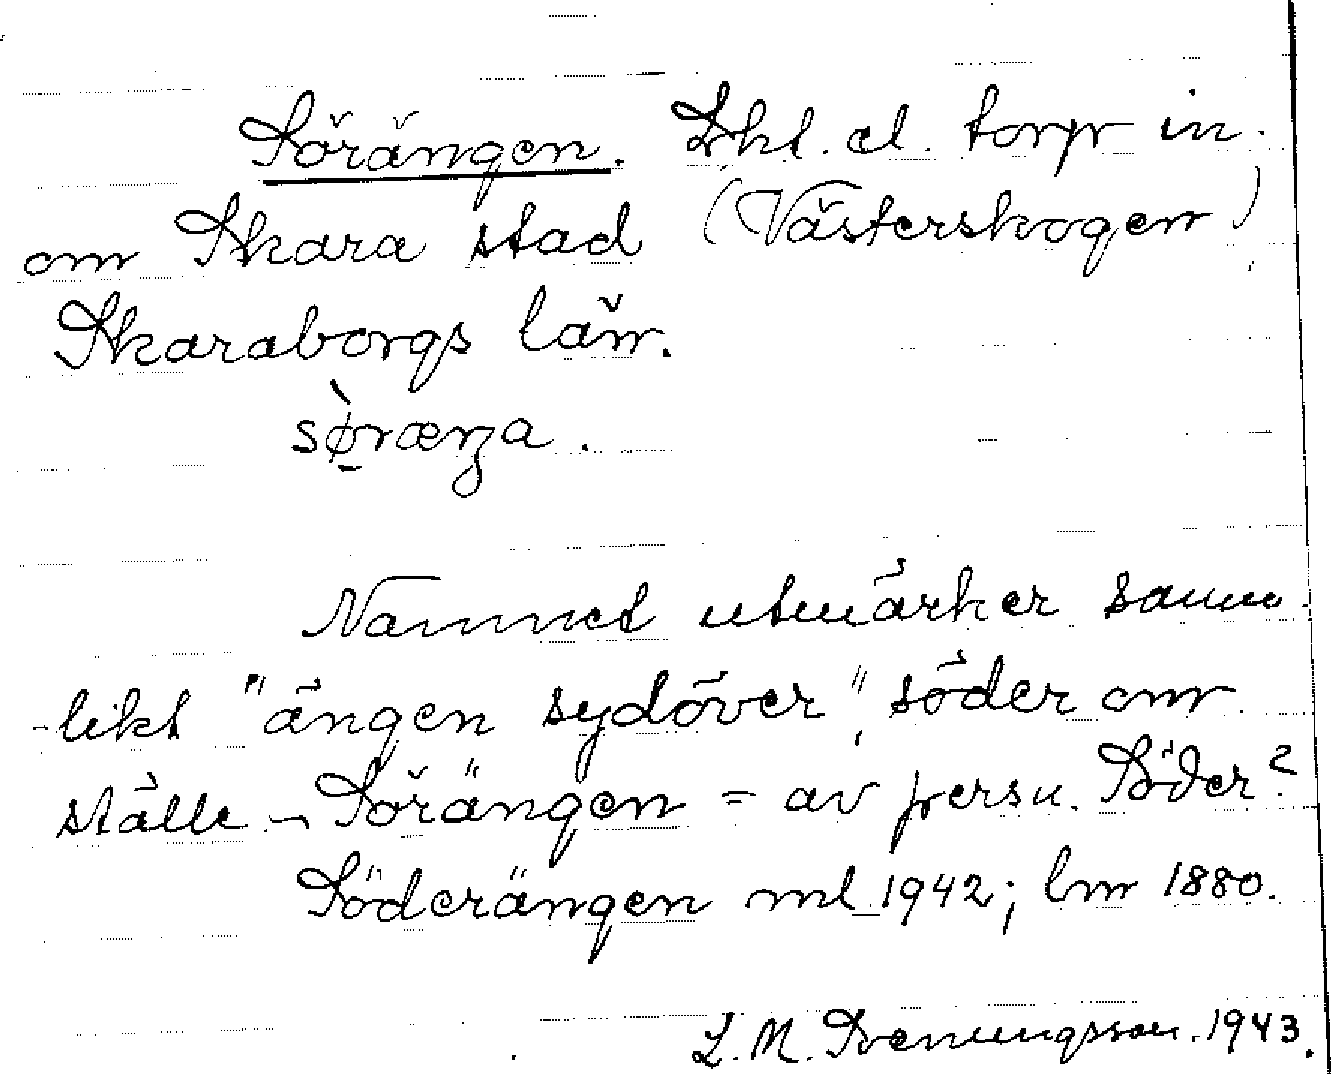 Sörängen. Lht. el. torp in
om Skara stad (Västerskogen)
Skaraborgs län.
sø̀ræŋa.
Namnet utmärker sanno
likt "ängen sydöver", söder om
ställe – Sörängen = av persn. Söder?
Söderängen ml 1942; lm 1880.
L. M. Svenungsson. 1943.